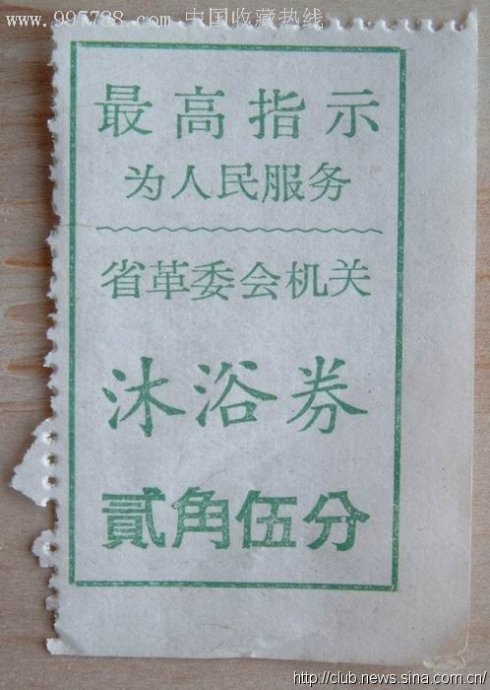 www.997788.com 中国收藏热线
最高指示
为人民服务
省革委会机关
沐浴券
貳角伍分
http://club.news.sina.com.cn/